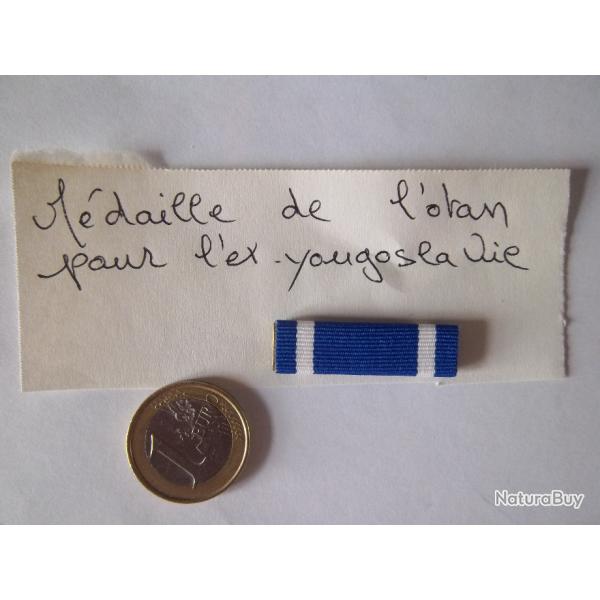 Médaille de l'otan
pour l'ex-yougoslavie
1
EURO
NaturaBuy